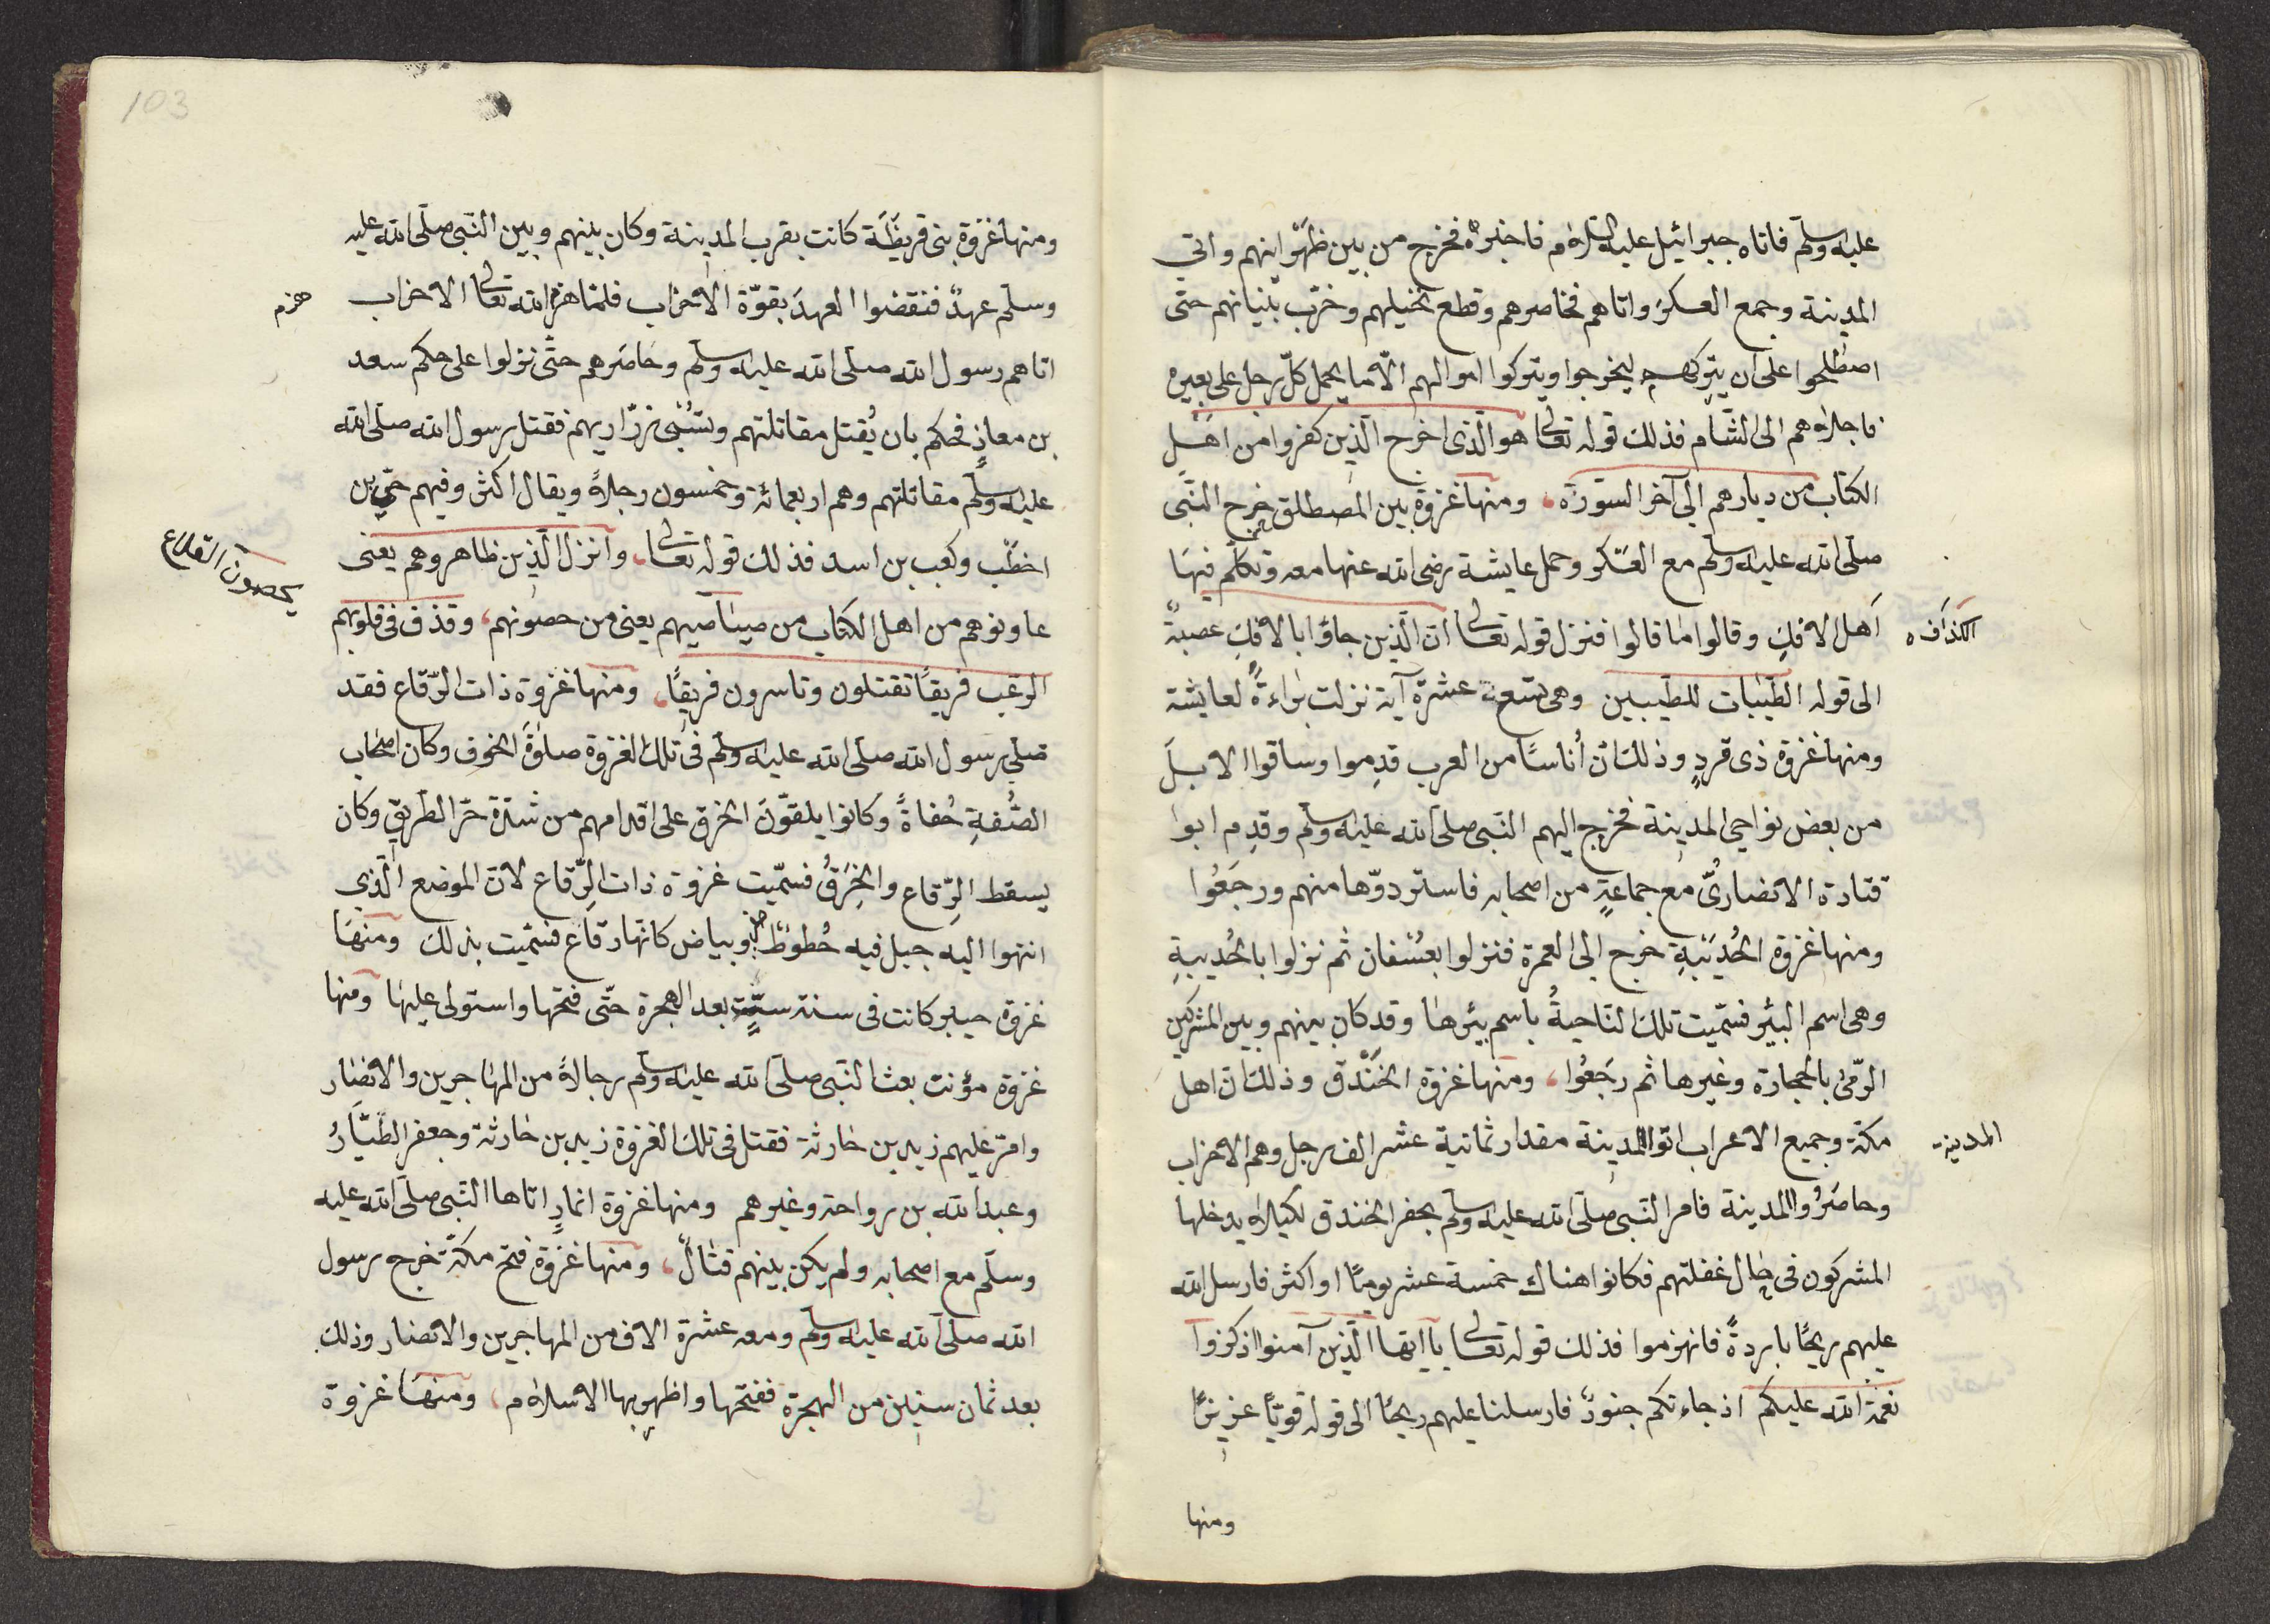 عليه وسلم فاتاه جبرائيل عليه السلام فاخبره فخرج من بين ظهرانيهم واتى
المدينة وجمع العسكر واتاهم فحاصرهم وقطع نخيلهم وخرّب بنيانهم حتّى
اصطلحوا على ان يتركهم ليخرجوا ويتركوا اموالهم الّا ما يحمل كلّ رجل على بعيره
فاجلاهم الى الشّام فذلك قوله تعالى هو الّذى اخرج الّذين كفروا من اهل
الكتاب من ديارهم الى آخر السّورة، ومنها غزوة بين المصطلق خرج النّبى
صلّى الله عليه وسلّم مع العسكر وحمل عايشة رضى الله عنها معه وتكلّم فيها
الكذافه
اَهل الافكِ وقالوا ما قالوا فنزل قوله تعالى انّ الّذين جاؤا بالافكِ عصبةٌ
الى قوله الطّيّبات للطّيبين وهى تسعة عشرة آية نزلت براءةً لعايشة
ومنها غزوة ذى قردٍ وذلك انّ أناسًا من العرب قدِموا وساقوا الابلَ
من بعض نواحى المدينة فخرج اليهم النّبى صلى الله عليه وسلّم وقدِم ابوا
قتادة الانصارىُّ مع جماعةٍ من اصحابه فاستردوّها منهم ورجَعُوا
ومنها غزوة الحُدَيْبيةِ خرج الى العمرة فنزلوا بعُسْفان ثم نزلوا بالحُديبيةِ
وهى اسم البئر فسمّيت تلك النّاحيةُ باسم بئرها وقد كان بينهم وبين المشركين
الرّمىُ بالحجارة وغيرها ثم رجَعُوا، ومنها غزوة الخَنْدَق وذلك انّ اهل
المدينة
مكّة وجميع الاعراب اتوا المدينة مقدار ثمانية عشر الف رجل وهم الاحزاب
وحاصَرُوا المدينة فامر النّبى صلّى الله عليه وسلّم بحفر الخندق لكيلا يدخلها
المشركون فى حال غفلتهم فكانوا هناك خمسة عشر يومًا او اكثر فارسل الله
عليهم ريحًا باردةً فانهزموا فذلك قوله تعالى يا ايّها الّذين آمنوا اذكروا
نعمة الله عليكم اذ جاءتكم جنودٌ فارسلنا عليهم ريحًا الى قوله قويًّا عزيزًا
ومنها
103
ومنها غزوة بنى قريظَة كانت بقرب المدينة وكان بينهم وبين النّبى صلّى الله عليه
وسلّم عهدٌ فنقضوا العهدَ بقوّة الاحزاب فلمّا هزم الله تعالى الاحزاب
هزم
اتاهم رسول الله صلّى الله عليه وسلّم وحاصَرهم حتّى نزلوا على حكم سعد
بن معاذٍ فحكم بان يُقتل مقاتلتهم وتسُبْى ذرّاريهم فقتل رسول الله صلّى الله
عليه وسلّم مقاتلتهم وهم اربعمائة وخمسون رجلاً ويقال اكثر وفيهم حَيّ بن
اخطَب وكعب بن اسد فذلك قوله تعالى، وانزل الّذين ظاهروهم يعنى
يحصون القلاع
عاونوهم من اهل الكتاب من صياصيهم يعنى من حصونهم، وقذف فى قلوبهم
الرعب فريقًا تقتلون وتاسرون فريقًا، ومنها غزوة ذات الرّقاع فقد
صلّى رسول الله صلّى الله عليه وسلّم فى تلك الغزوة صلوةَ الخوف وكان اصحاب
الصُّفةِ حُفاةً وكانوا يلفّونَ الخرق على اقدامهم من شدّة حرّ الطريق وكان
يسقط الرِّقاع والخِرَقُ فسمّيت غزوة ذات الرّقاع لانّ الموضع الّذى
انتهوا اليه جبل فيه خُطوطٌ وبياض كانّها رقاع فسمّيت بذلك ومنها
غزوة خيبر كانت فى سنة ستّةٍ بعد الهجرة حتّى فتحها واستولى عليها ومنها
غزوة مؤنت بعث النّبى صلى الله عليه وسلّم رجالاً من المهاجرين والانصار
وامّر عليهم زيد بن حارثة فقتل فى تلك الغزوة زيد بن حارثة وجعفر الطّيّارُ
وعبد الله بن رواحة وغيرهم ومنها غزوة انمارٍ اتاها النّبى صلّى الله عليه
وسلّم مع اصحابه ولم يكن بينهم قتالٌ، ومنها غزوة فتح مكّة خرج رسول
الله صلى الله عليه وسلّم ومعه عشرة الاف من المهاجرين والانصار وذلك
بعد ثمان سنين من الهجرة ففتحها واظهر بها الاسلام، ومنها غزوة